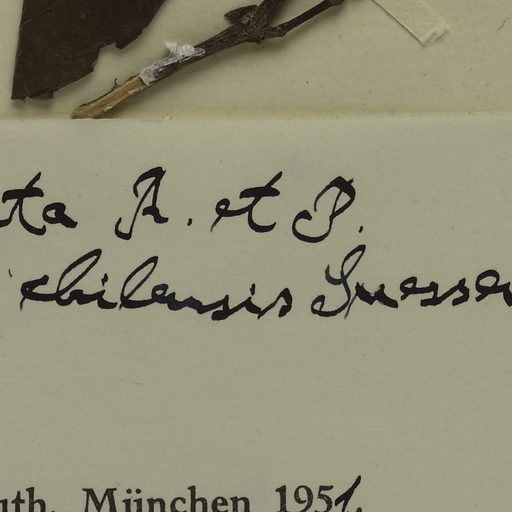 ta R. et P.
chilensis Suessen
uth. München 1951.